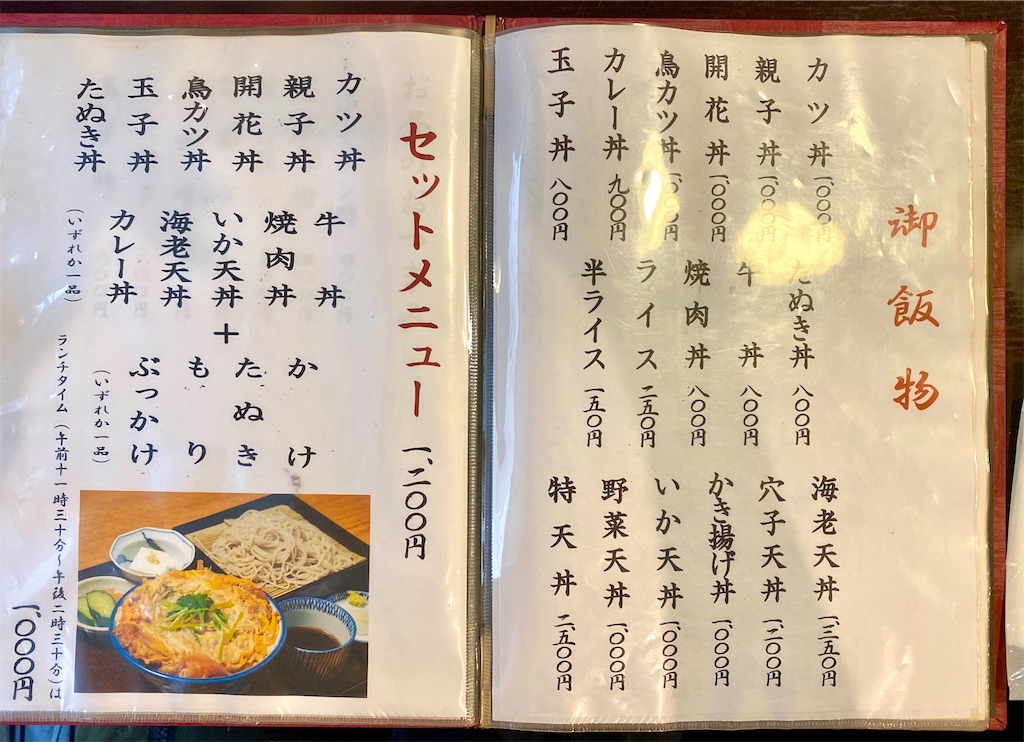 御飯物
カツ丼 一、〇〇〇円
親子丼 一、〇〇〇円
開花丼 一、〇〇〇円
鳥カツ丼 一、〇〇〇円
カレー丼 九〇〇円
玉子丼 八〇〇円
たぬき丼 八〇〇円
牛丼 八〇〇円
焼肉丼 八〇〇円
ライス 二五〇円
半ライス 一五〇円
海老天丼 一、三五〇円
穴子天丼 一、二〇〇円
かき揚げ丼 一、〇〇〇円
いか天丼 一、〇〇〇円
野菜天丼 一、〇〇〇円
特天丼 二、五〇〇円
セットメニュー 一、二〇〇円
カツ丼
親子丼
開花丼
鳥カツ丼
玉子丼
たぬき丼
牛丼
焼肉丼
いか天丼
海老天丼
カレー丼
(いずれか一品)
+
かけ
たぬき
もり
ぶっかけ
(いずれか一品)
ランチタイム(午前十一時三十分～午後二時三十分)は
一、〇〇〇円